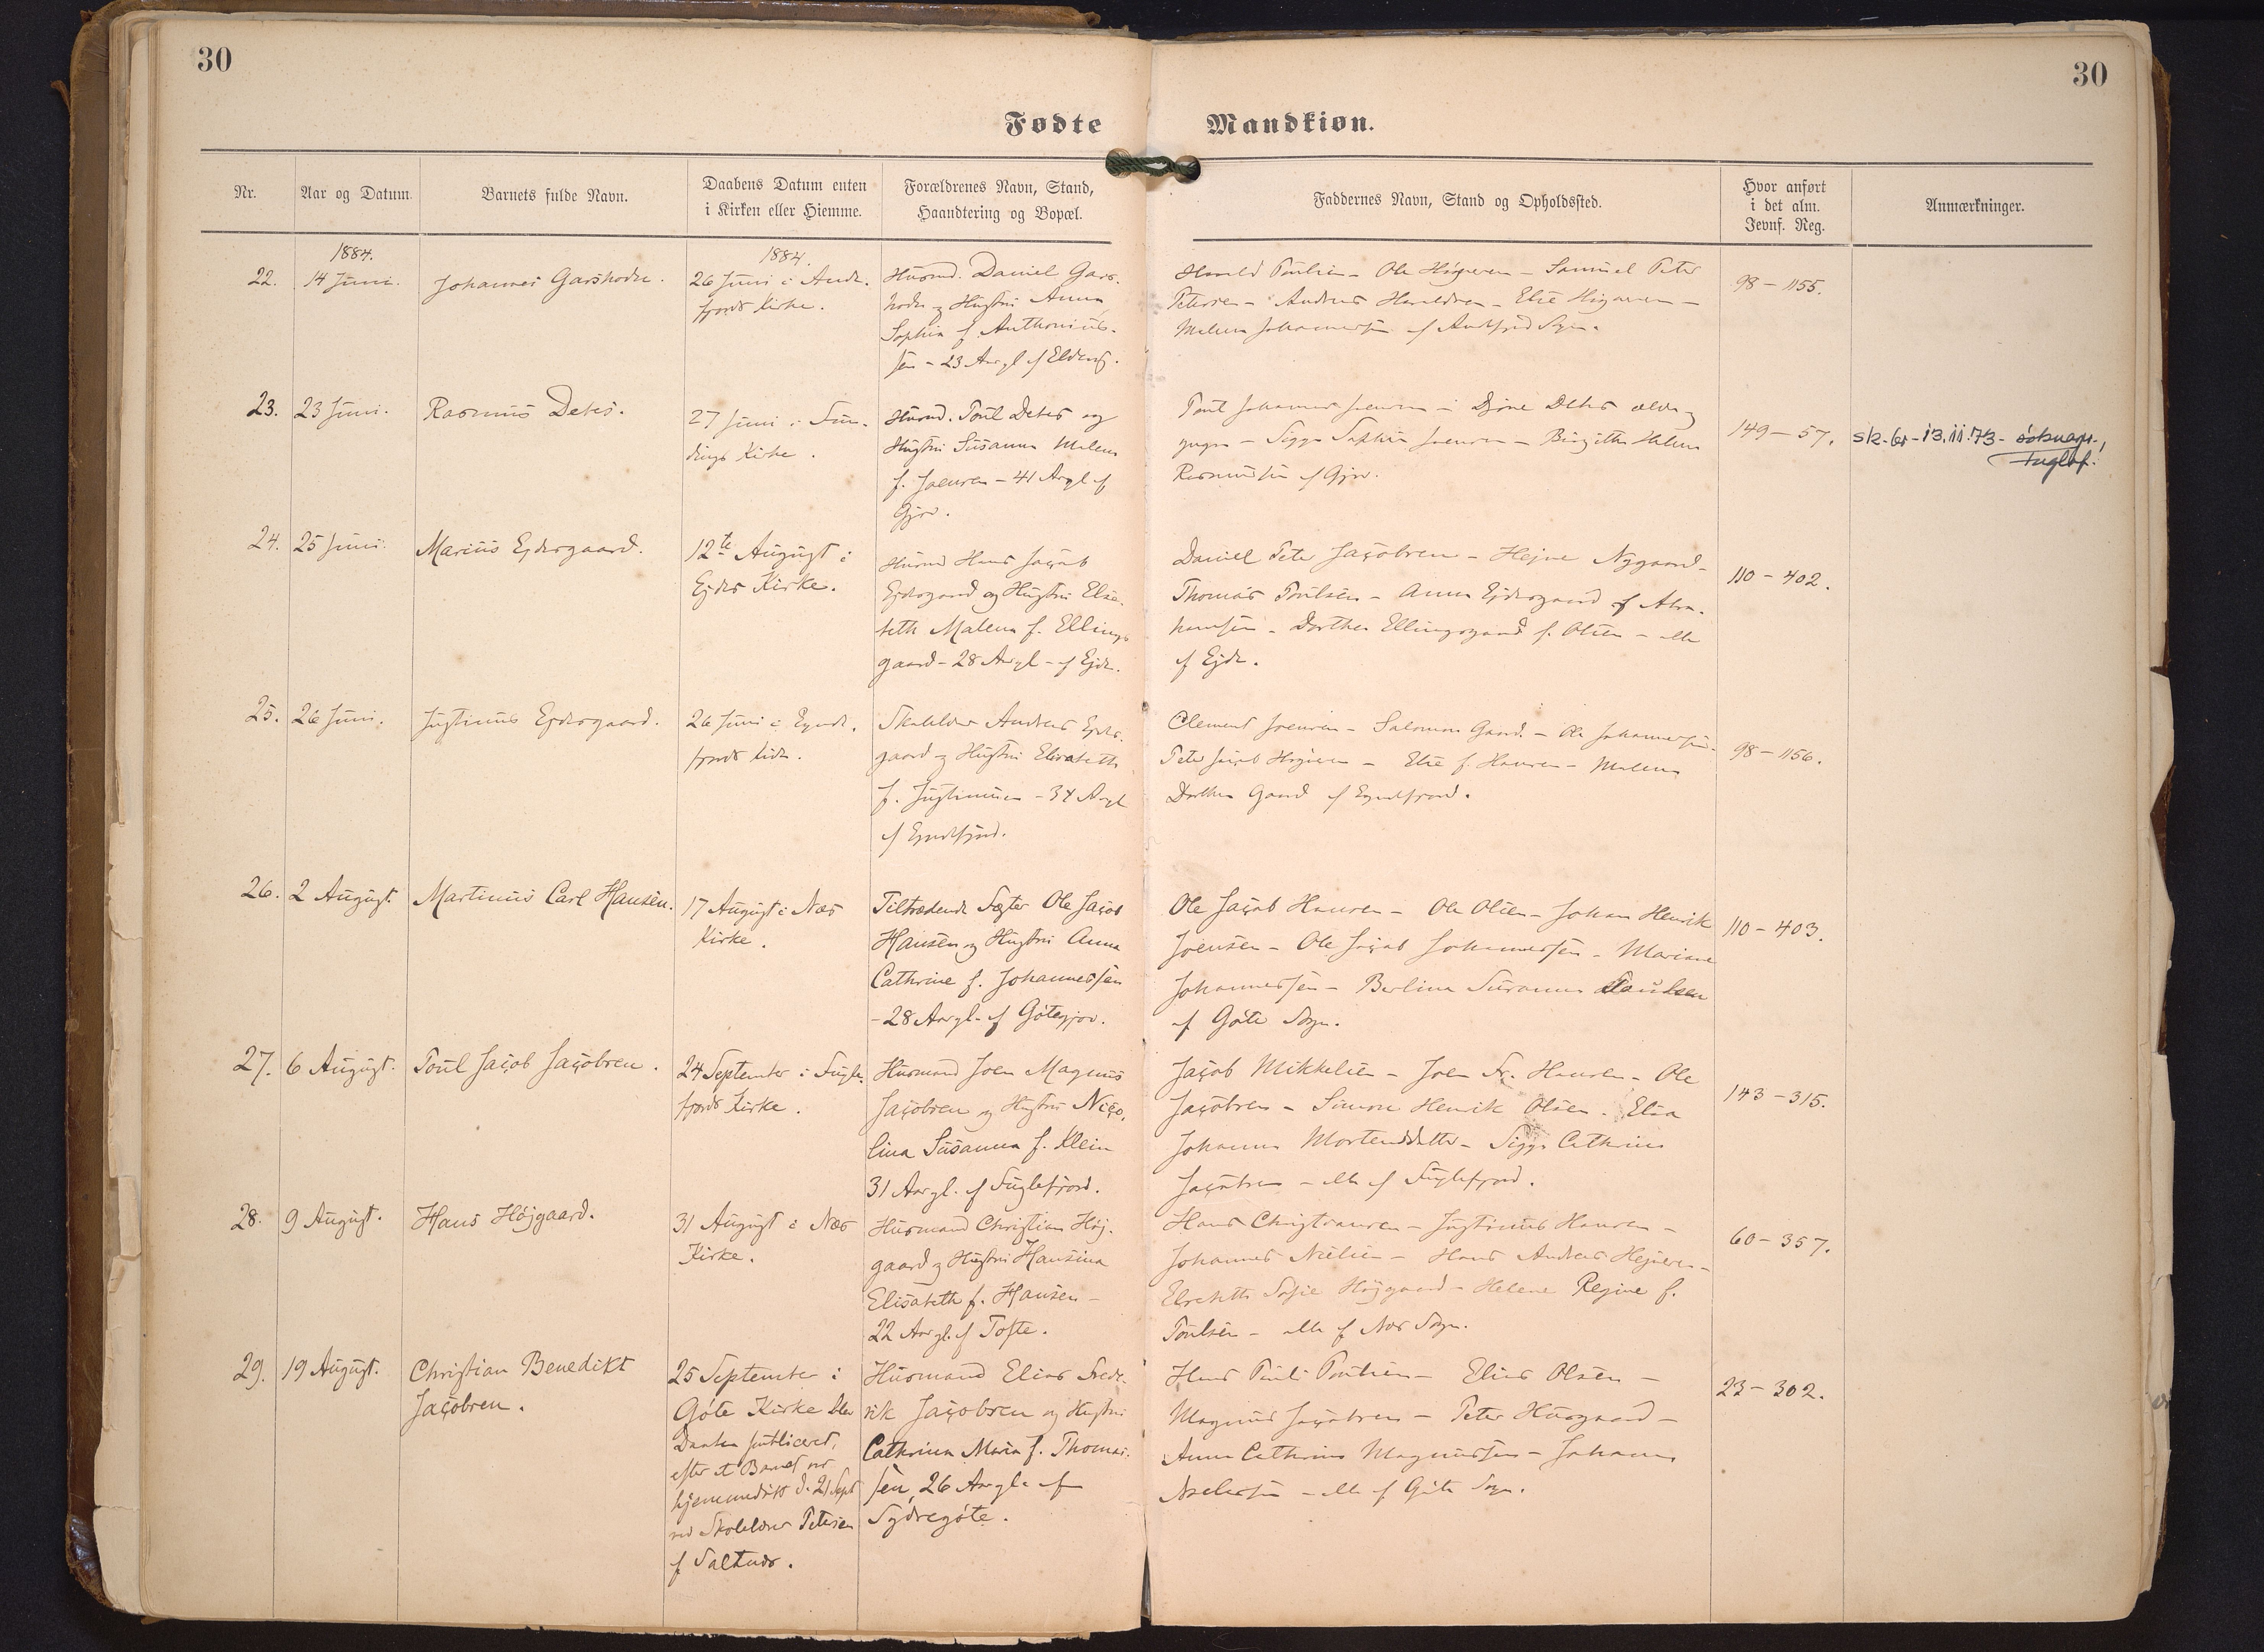 30
30
Fødte Mandkiøn.
Nr.
Aar og Datum.
Barnets fulde Navn.
Daabens Datum enten
i Kirken eller Hiemme.
Forældrenes Navn, Stand,
Haandtering og Bopæl.
Faddernes Navn, Stand og Opholdssted.
Hvor anført
i det alm.
Jevnf. Reg.
Anmærkninger.
1884.
22.
14 Juni.
Johannes Garshodn.
1884.
26 Juni i Andr.
fjords Kirke.
Husmd. Daniel Gars.
hodn og Hustru Anna
Sophia f. Anthonius-
sen - 23 Aar gl. af
- Ole - Samuel Peter
Petersen - Andreas - Else -
Malena Johannessen af Sogn.
98 - 1155.
23.
23 Juni.
Rasmus Detes.
27 Juni i Fun-
dings Kirke.
Husmd. Poul Detes og
Hustru Susanna Malena
f. Joensen - 41 Aar gl. af
Gjov.
Poul Johannes Joensen - Detes ældre og
yngre - Sigga Sophia Joensen - Birgitte Helena
Rasmussen af Gjov.
149 - 57.
sk. - 13.11.73 -
Fuglaf.
24.
25 Juni.
Marius Ejdesgaard.
12te August i
Ejdes Kirke.
Husmd Hans Jacob
Ejdesgaard og Hustru Elsa-
beth Malena f. Ellings-
gaard - 28 Aar gl. - af Ejde.
Daniel Peter Jacobsen - Hejne Nygaard -
Thomas Poulsen - Anna Ejdesgaard f. Abra-
hamsen - Dorthea Ellingsgaard f. Olsen - alle
af Ejde.
110 - 402.
25.
26 Juni.
Justinus Ejdesgaard.
26 Juni i
fjords Kirke.
Skolelærer Andreas Ejdes-
gaard og Hustru Elisabeth
f. Justinussen - 34 Aar gl.
af
Clement Joensen - Salomon Gaard - Ole Johannessen -
Peter Jacob - Else f. Hansen - Malena
Dorthea Gaard af
98 - 1156.
26.
2 August.
Martinus Carl Hansen.
17 August i Næs
Kirke.
Tiltrædende Fæster Ole Jacob
Hansen og Hustru Anna
Cathrine f. Johannessen
- 28 Aar gl. - af Götegjov.
Ole Jacob Hansen - Ole Olsen - Johan Henrik
Joensen - Ole Jacob Johannessen - Mariane
Johannessen - Berlina Susanna Poulsen
af Göte Sogn.
110 - 403.
27.
6 August.
Poul Jacob Jacobsen.
24 September i Fugle-
fjords Kirke.
Husmand Joen Magnus
Jacobsen og Hustru Nico-
lina Susanna f. Klein
31 Aar gl. af Fuglefjord.
Jacob Mikkelsen - Joen Fr. Hansen - Ole
Jacobsen - Simon Henrik Olsen - Elsa
Johanna Mortensdatter - Sigga Cathrina
Jacobsen - alle af Fuglefjord.
143 - 315.
28.
9 August.
Hans Højgaard.
31 August i Næs
Kirke.
Husmand Christian Høj-
gaard og Hustru Hansina
Elisabeth f. Hansen -
22 Aar gl. af Tofte.
Hans Christiansen - Justinus Hansen -
Johannes Nielsen - Hans Andreas -
Elsebeth Sofie Højgaard - Helene Regine f.
Poulsen - alle af Næs Sogn.
60 - 357.
29.
19 August.
Christian Benedikt
Jacobsen.
25 September i
Göte Kirke blev
Daaben publiceret,
efter at Barnet var
hjemmedøbt d. 21 Sept
ved Skolelærer Petersen
af Saltnæs.
Husmand Elias Frede-
rik Jacobsen og Hustru
Cathrina Maria f. Thomas-
sen, 26 Aar gl. af
Sydregöte.
Hans Pauli Poulsen - Elias Olsen -
Magnus Jacobsen - Peter Husgaard -
Anna Cathrina Magnussen - Johanna
- alle af Göte Sogn.
23 - 302.